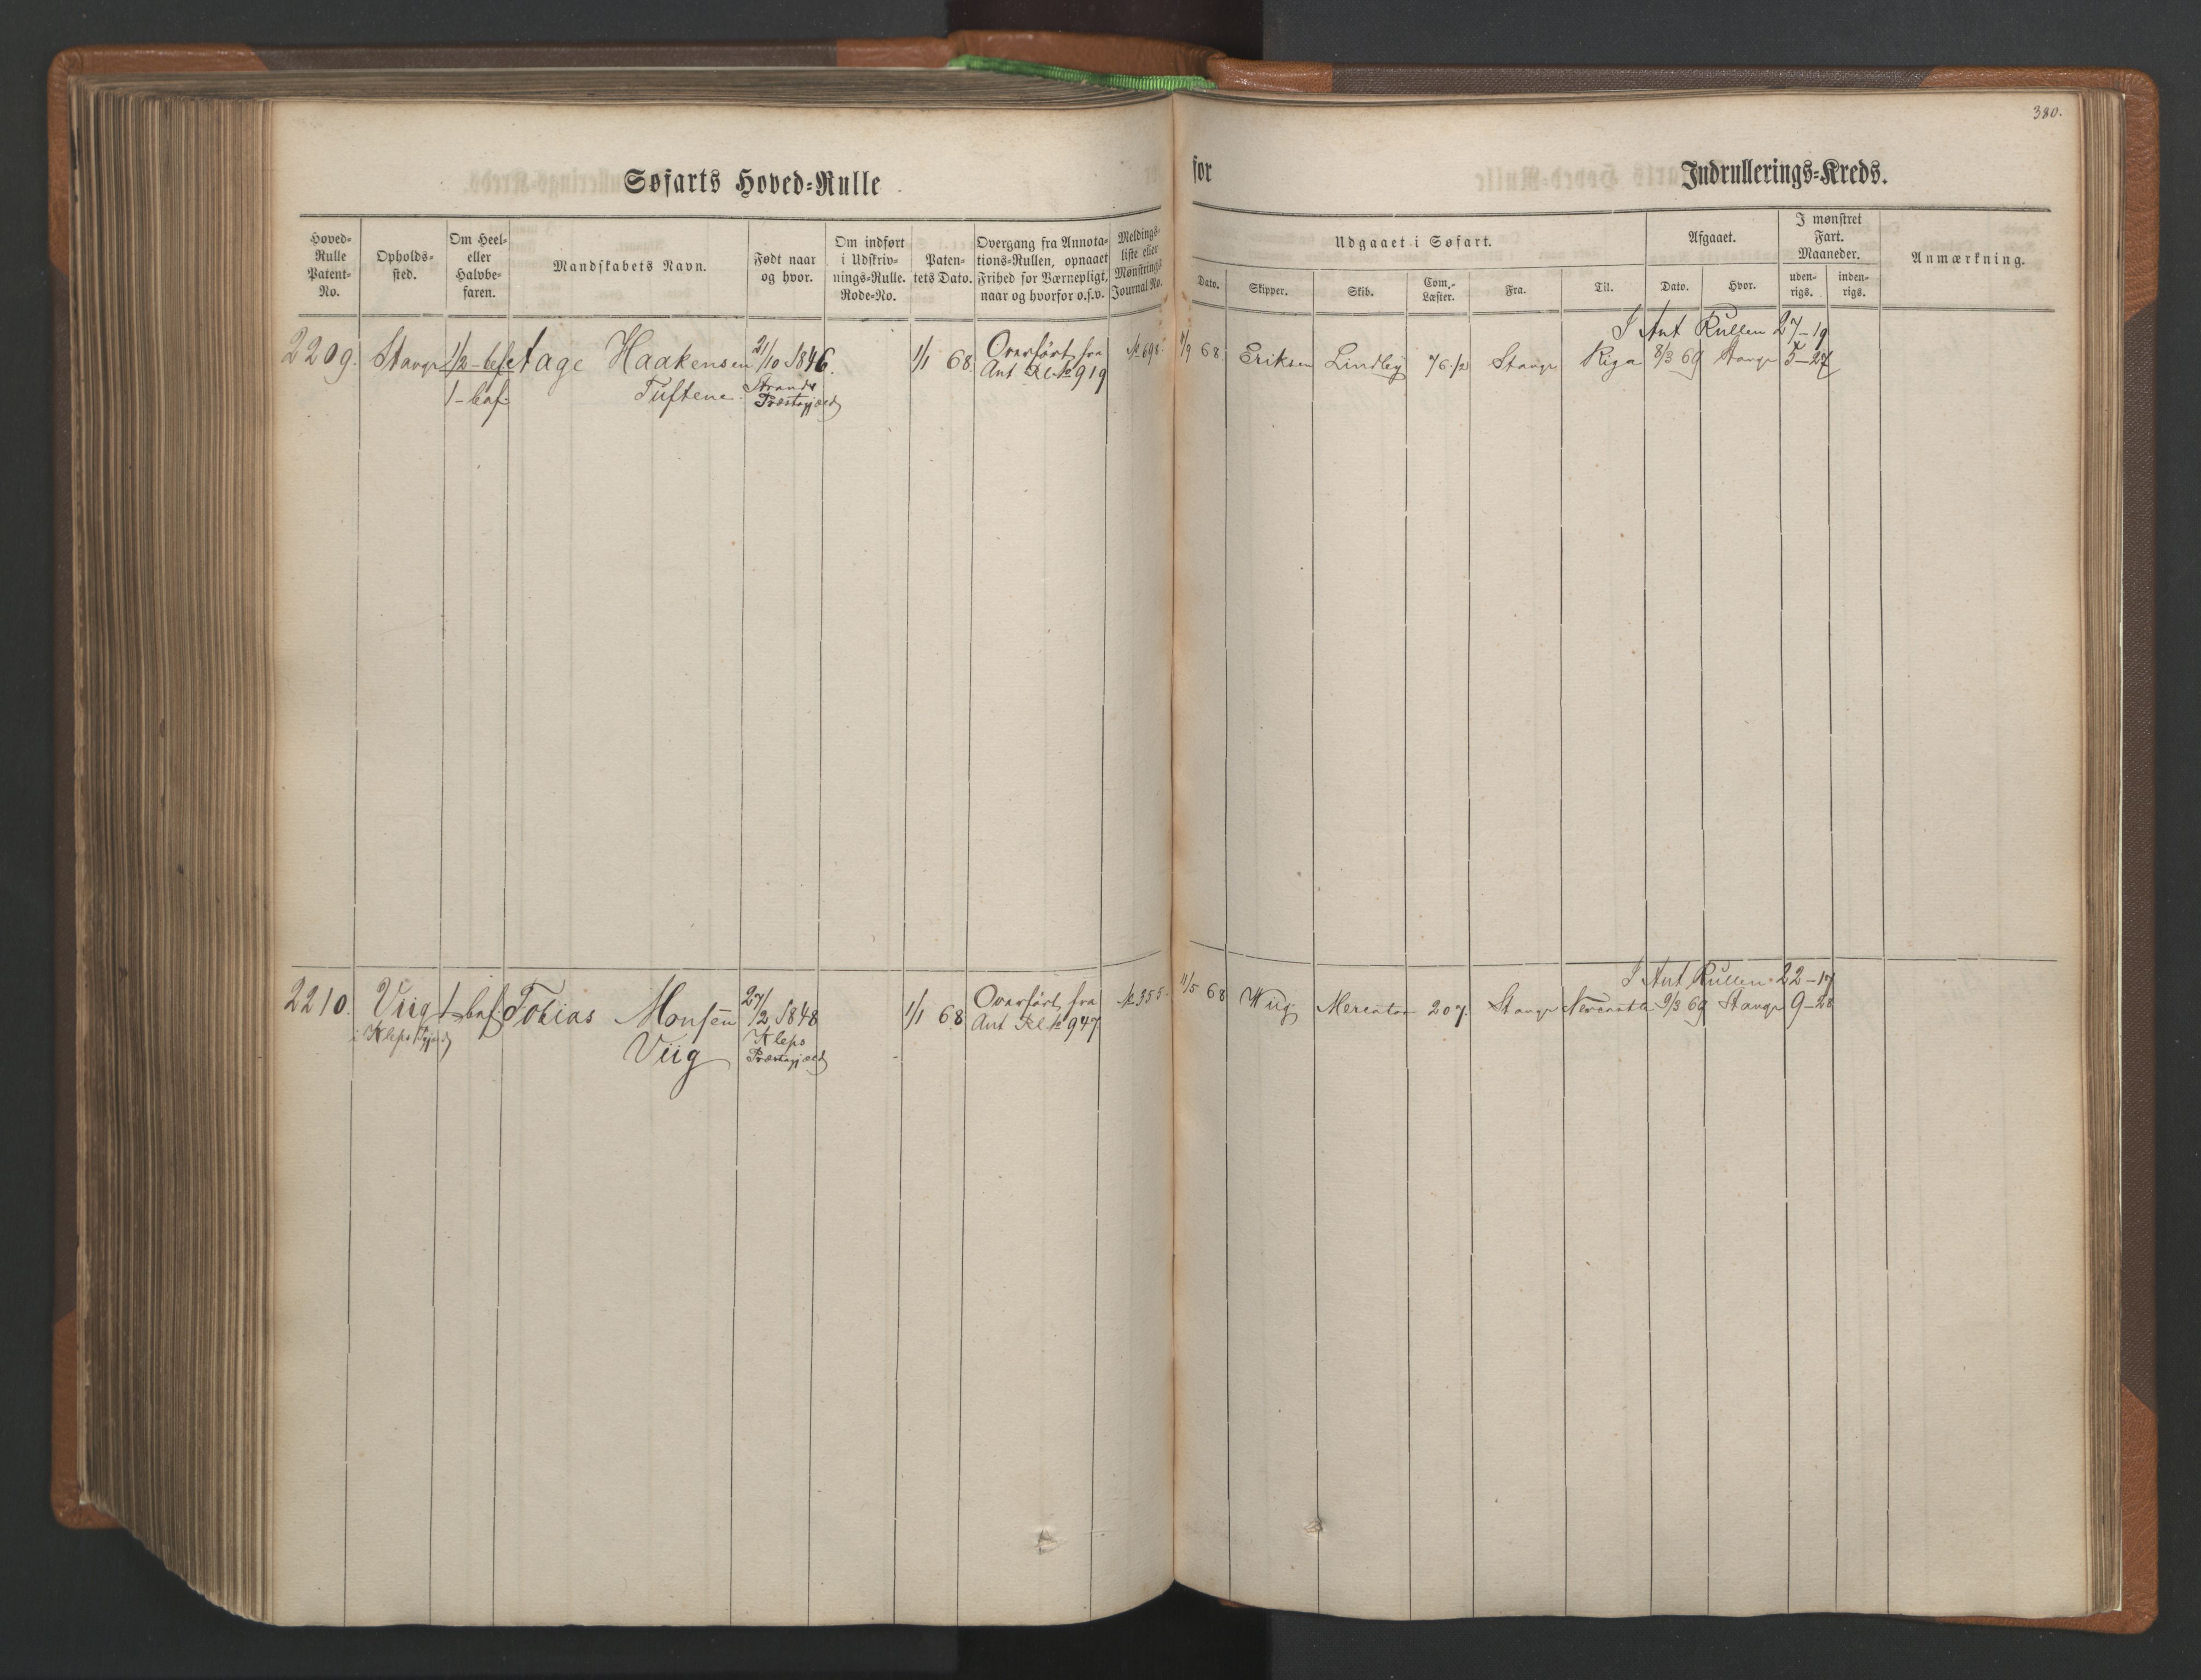 380.
Søfarts Hoved=Rulle
for Indrullerings=Kreds.
Hoved=Rulle Patent=No.
Opholds=sted.
Om Heel= eller Halvbe=faren.
Mandskabets Navn.
Født naar og hvor.
Om indført i Udskriv=nings=Rulle. Rode=No.
Paten=tets Dato.
Overgang fra Annota=tions=Rullen, opnaaet Frihed for Værnepligt, naar og hvorfor o.s.v.
Meldings=liste eller Mønstrings Journal No.
Udgaaet i Søfart.
Dato.
Skipper.
Skib.
Com.=Læster.
Fra.
Til.
Afgaaet.
Dato.
Hvor.
I mønstret Fart. Maaneder.
uden=rigs.
inden=rigs.
Anmærkning.
I Ant Rullen 27-19
2209. Stavgr 1/2-bef Aage Haakensen 21/10 1846. 1/1 68 Overført fra № 698 68 Eriksen Lindley 76 1/2 Stavgr Riga 8/3 69 Stavgr 5-27
1-bef Tuftene Strands Præstegjæld Ant Rl № 919
I Ant Rullen 22-17
2210. Viig 1-bef Tobias Monsen 27/2 1848 1/1 68 Overført fra № 355 11/5 68 Wiig Mercator 207 Stavgr Newcastle 9/3 69 Stavgr 9-28
i Kleps Pgjæld Viig Kleps Præstegjæld Ant Rl № 947